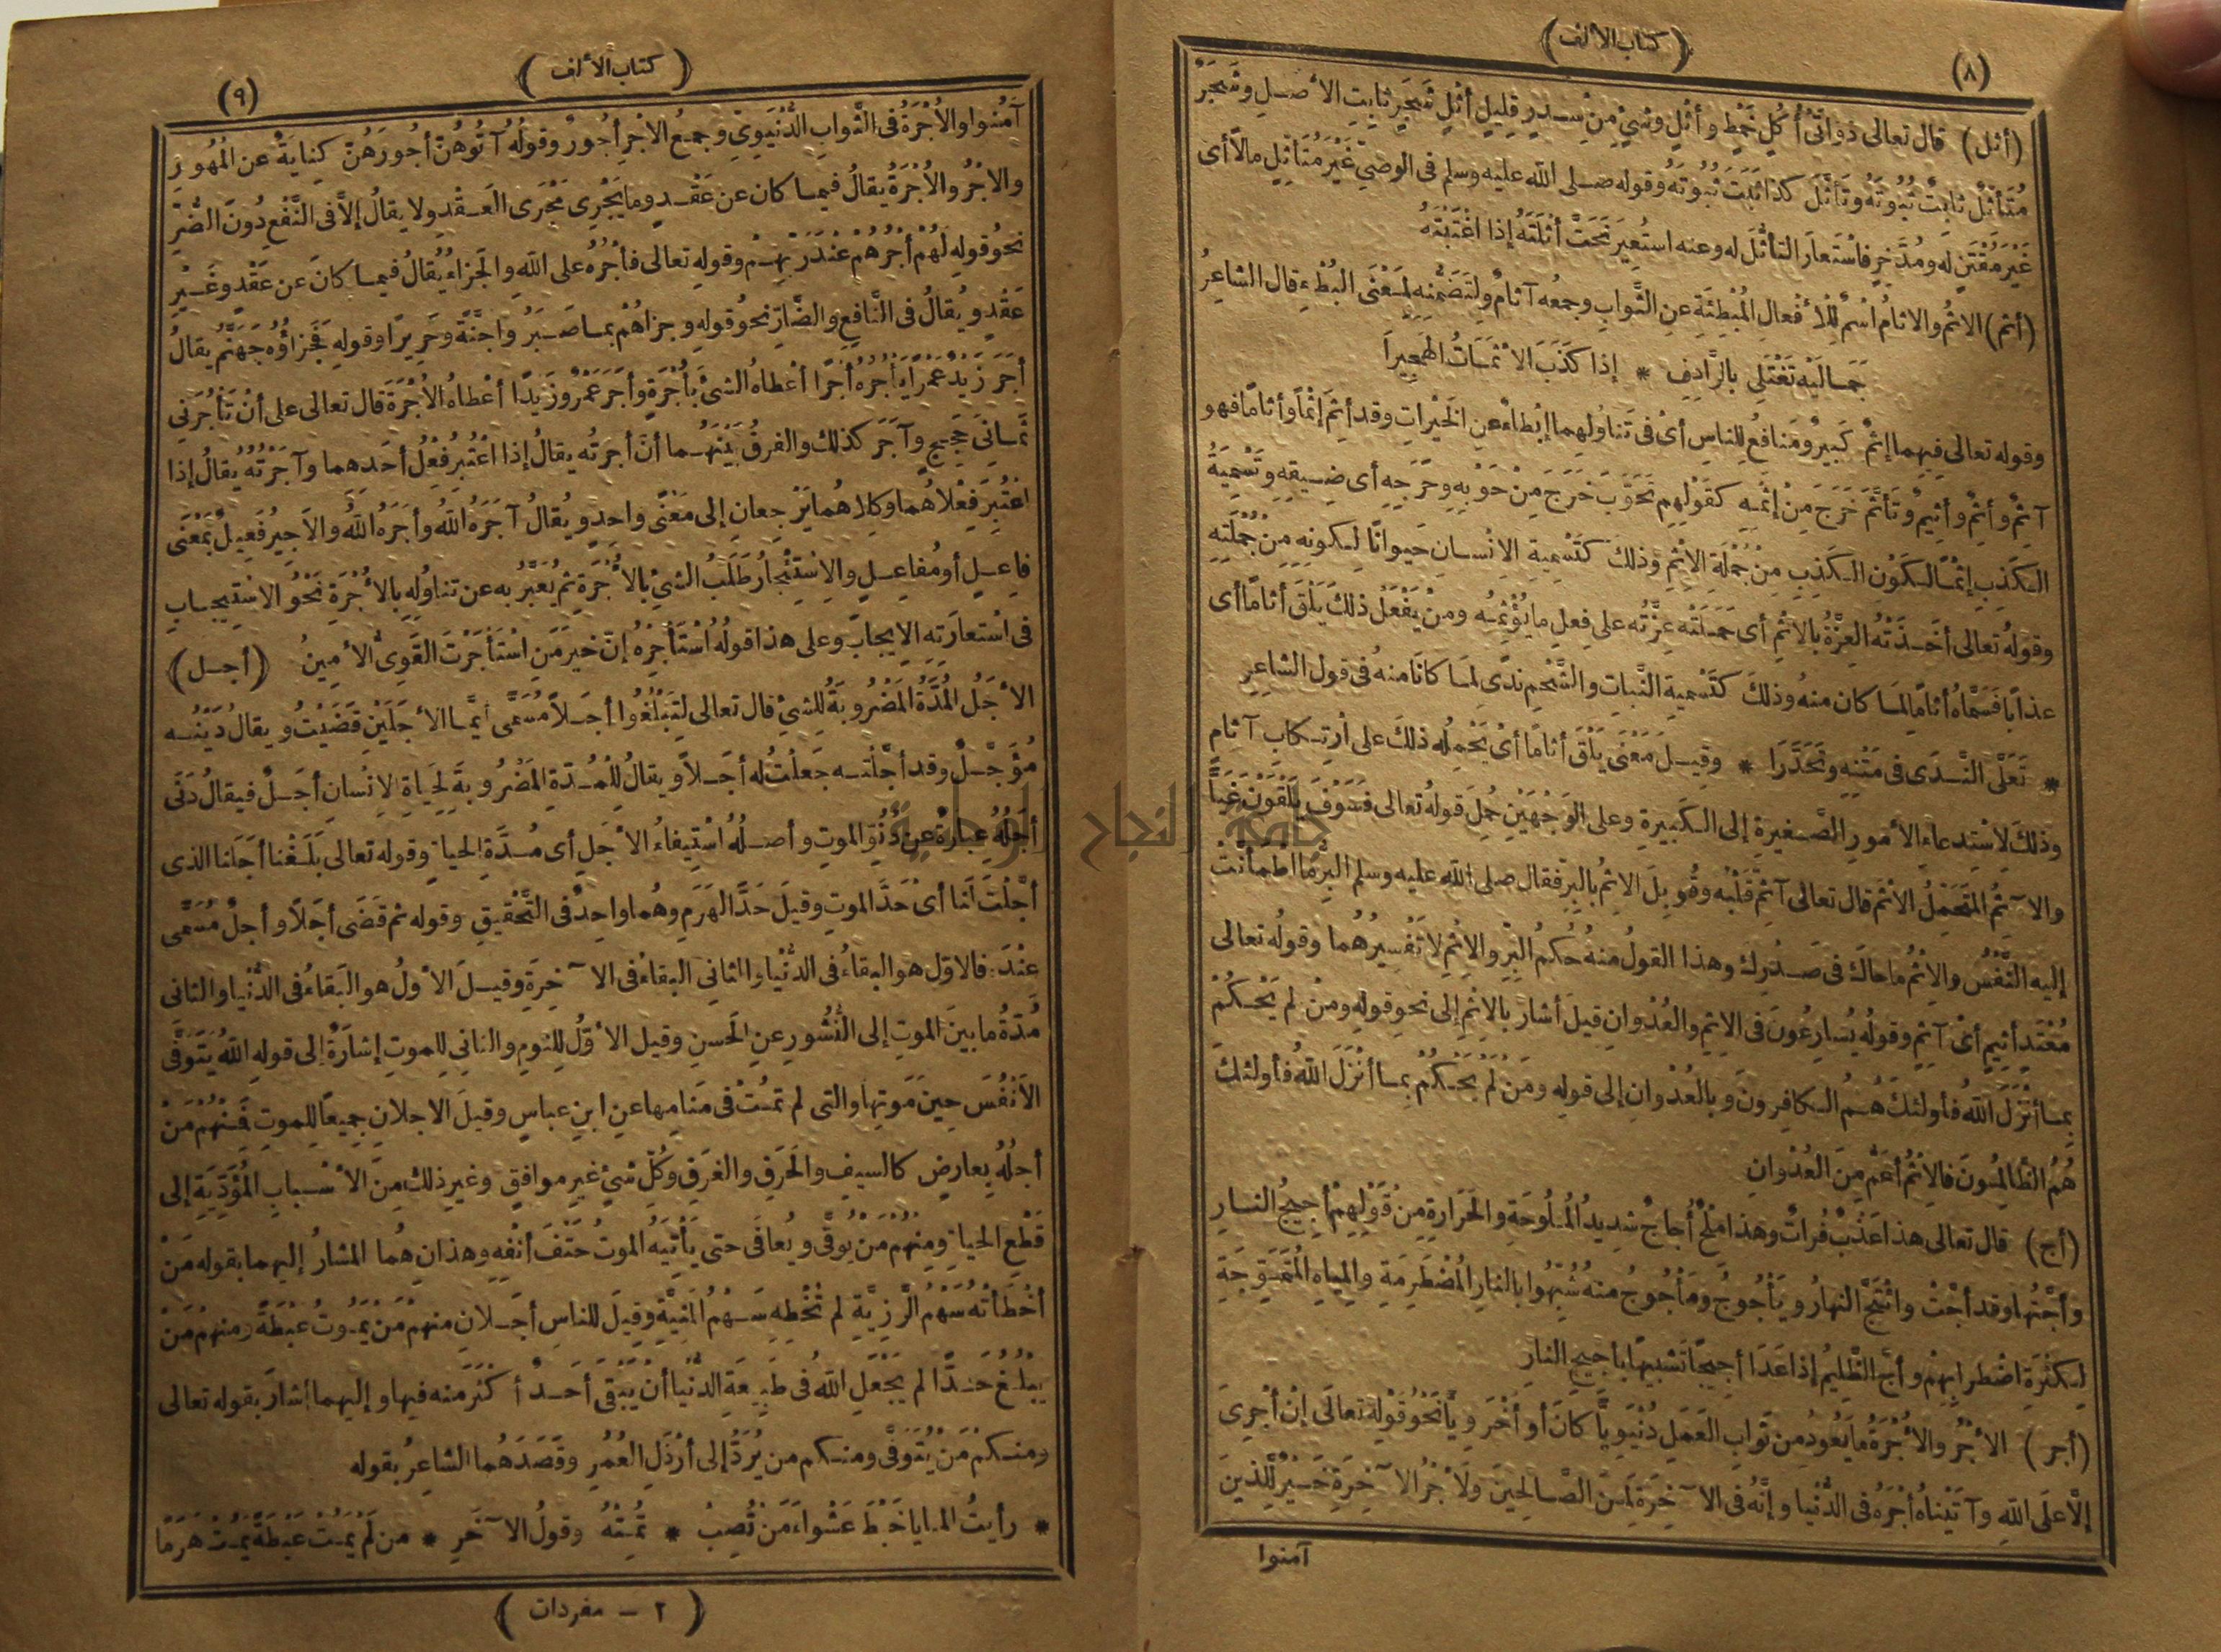 (٨)
(كتاب الألف)
(أثل) قال تعالى ذَوَاتَىْ أُكُلٍ خَمْطٍ وأثْلٍ وشىْءٍ مِنْ سِدْرٍ قلِيلٍ أثْلٍ شَجَرٌ ثابِتِ الأصلِ وشَجَرٌ
مُتَأثِّلٌ ثابِتٌ ثُبُوتَهُ وتَأثَّلَ كذا ثَبَتَ ثُبُوتَهُ وقوله صلى الله عليه وسلم فى الوصِىِّ غَيْرَ مُتَأثِّلٍ مالاً أى
غَيْرَ مُقْتَنٍ له ومُدَّخِرٍ فاسْتَعارَ التأثُّلَ له وعنه استُعِيرَ نَحَتَّ أثْلَتَهُ إذا اغْتَبْتَهُ
(أثم) الاثمُ والاثامُ اسْمٌ لِلْأفْعالِ المُبْطِئَةِ عنِ الثَّوابِ وجمعُه آثامٌ ولِتَضَمُّنِهِ لِمَعْنَى البُطْءِ قال الشاعِرُ
جَمَالِيَّه تَغْتَلِى بالرَّادِفِ * إذا كَذَبَ الآثِمَاتُ الهَجِيرَا
وقوله تعالى فِيهِما إثمٌ كَبِيرٌ ومَنافِعُ للناسِ أىْ فى تَناوُلِهِما إبْطاءٌ عنِ الخَيْراتِ وقد أثِمَ إثْماً وأثاماً فهو
آثِمٌ وأثِمٌ وأثِيمٌ وتَأثَّمَ خَرَجَ مِنْ إثْمِهِ كقَوْلِهِم تَحَوَّبَ خَرَجَ مِنْ حَوْبِهِ وحَرَجِه أى ضِيقِهِ وتَسْمِيَةُ
الكَذِبِ إثْمًا لِكَوْنِ الكَذِبِ مِنْ جُمْلَةِ الاثْمِ وذلكَ كتَسْمِيةِ الانْسانِ حَيوانًا لكونِهِ مِنْ جُمْلَتِهِ
وقولهُ تعالى أخَذَتْهُ العِزَّةُ بالاثْمِ أى حَمَلَتْه عِزَّتُه على فِعلِ ما يُؤْثِمُه ومنْ يَفْعَلْ ذلكَ يَلْقَ أثاماً أى
عذابًا فسَمَّاهُ أثاماً لمَا كان منهُ وذلكَ كتَسْميةِ النَّباتِ والشَّحْمِ ندًى لمَا كانَا منهُ فى قول الشاعِرِ
* تَعَلَّى النَّدَى فى مَتْنِهِ وتَحَدَّرَا * وقيلَ مَعْنَى يَلْقَ أثامًا أىْ يَحْمِلُه ذلكَ على ارتِكابِ آثامٍ
وذلكَ لاسْتِدعاءِ الأُمورِ الصَّغيرةِ إلى الكَبيرةِ وعلى الوَجْهَيْنِ حُمِلَ قولهُ تعالى فسَوْفَ يَلْقَوْنَ غَيًّا
والآثمُ المتَحَمِّلُ الاثمَ قال تعالى آثِمٌ قَلْبُه وقُوبِلَ الاثمُ بالبِرِّ فقال صلى الله عليه وسلم البِرُّ ما اطمأنَّتْ
إليه النَّفْسُ والاثْمُ ما حاكَ فى صَدْرِكَ وهذا القولُ منهُ حُكمُ البِرِّ والاثمِ لا تَفْسِيرُهُما وقولُه تعالى
مُعْتَدٍ أثيمٍ أىْ آثمٍ وقولُه يُسارِعُونَ فى الاثمِ والعُدْوانِ قيلَ أشارَ بالاثْمِ إلى نحوِ قولهِ ومنْ لم يَحْكُمْ
بِما أنْزَلَ اللهُ فأولئكَ هُمُ الكافِرونَ وبالعُدْوانِ إلى قولِهِ ومَن لَمْ يَحْكُمْ بِما أنْزَلَ اللهُ فأولئكَ
هُمُ الظَّالِمُونَ فالاثمُ أعَمُّ مِنَ العُدْوانِ
(أج) قال تعالى هذا عَذْبٌ فُراتٌ وهذا مِلْحٌ أُجاجٌ شدِيدُ المُلُوحَةِ والحَرارةِ مِنْ قَوْلِهِمْ أجِيجُ النارِ
وأجَّتُها وقد أجَّتْ وائْتَجَّ النهارُ ويَأْجُوجُ ومَأْجُوجُ منه شُبِّهُوا بالنارِ المُضْطَرِمَةِ والمِياهِ المُتَمَوِّجَةِ
لِكَثْرَةِ اضْطرابِهِمْ وأجَّ الظَّلِيمُ إذا عَدَا أجِيجًا تَشْبِيهًا بأجِيجِ النارِ
(أجر) الأجْرُ والأُجْرَةُ ما يَعُودُ مِن ثَوابِ العَمَلِ دُنْيَوِيًّا كانَ أو أُخْرَوِيًّا نَحْوُ قَوْلِهِ تعالَى إنْ أجْرِىَ
إلَّا علَى اللهِ وآتَيْناهُ أجْرَهُ فى الدُّنْيا وإنَّه فى الآخِرَةِ لَمِنَ الصَّالِحِينَ ولَأجْرُ الآخِرَةِ خَيْرٌ لِلَّذينَ
آمنوا
(كتاب الألف)
(٩)
آمَنُوا والأُجْرَةُ فى الثَّوابِ الدُّنْيَوِىِّ وجمعُ الاجْرِ أُجُورٌ وقولُهُ آتُوهُنَّ أُجُورَهُنَّ كِنايَةٌ عنِ المُهُورِ
والاجْرُ والأُجْرَةُ يقالُ فيما كان عن عَقْدٍ وما يَجْرِى مَجْرَى العَقْدِ ولا يقالُ إلَّا فى النَّفْعِ دُونَ الضُّرِّ
نحوُ قولِهِ لَهُمْ أجْرُهُمْ عِنْدَ رَبِّهِمْ وقولهِ تعالى فأجْرُهُ على اللهِ والجَزاءُ يُقالُ فيما كانَ عن عَقْدٍ وغَيْرِ
عَقْدٍ ويُقالُ فى النَّافِعِ والضَّارِّ نحوُ قولِهِ وجزاهُمْ بما صَبَرُوا جَنَّةً وحَرِيرًا وقولهِ فَجَزاؤُه جَهَنَّمُ يقالُ
أجَرَ زَيْدٌ عَمْرًا يأْجُرُهُ أجْرًا أعْطاهُ الشىْءَ بأُجْرَةٍ وآجَرَ عَمْرٌو زَيْدًا أعْطاهُ الأُجْرَةَ قال تعالى على أنْ تَأْجُرَنِى
ثَمانِىَ حِجَجٍ وآجَرَ كذلكَ والفرقُ بَيْنَهُما أنَّ أجَرتُه يقالُ إذا اعْتُبِرَ فِعْلُ أحَدِهما وآجَرْتُهُ يُقالُ إذا
اعْتُبِرَ فِعْلاهُما وكِلاهُما يَرْجِعانِ إلى مَعْنًى واحدٍ ويُقالُ آجَرَهُ اللهُ وأجَرَهُ اللهُ والاجِيرُ فَعِيلٌ بمَعْنَى
فاعِلٍ أو مُفاعِلٍ والاسْتِئْجارُ طَلَبُ الشىْءِ بالأُجْرَةِ ثم يُعَبَّرُ به عن تناوُلِهِ بالأُجْرَةِ نَحْوُ الاسْتِيجابِ
فى اسْتعارَتِهِ الايجابَ وعلى هذا قولُهُ اسْتَأْجِرْهُ إنَّ خيرَ مَنِ اسْتَأْجَرْتَ القَوِىُّ الأمِينُ (أجل)
الأجَلُ المُدَّةُ المَضْرُوبَةُ للشىْءِ قال تعالى لِتَبْلُغُوا أجَلاً مُسَمًّى أيَّما الأجَلَيْنِ قَضَيْتُ ويقالُ دَيْنُه
مُؤَجَّلٌ وقد أجَّلْتُه جعلْتُ له أجَلاً ويقالُ للمُدَّةِ المَضْرُوبةِ لِحَياةِ الانْسانِ أجَلٌ فيقالُ دَنَى
أجَلُهُ عِبارةً عن دُنُوِّ الموتِ وأصلُهُ اسْتِيفاءُ الأجَلِ أى مُدَّةِ الحياةِ وقوله تعالى بَلَغْنا أجَلَنا الذى
أجَّلْتَ لَنا أىْ حَدَّ الموتِ وقيلَ حَدَّ الهَرَمِ وهُما واحِدٌ فى التَّحْقيقِ وقوله ثم قَضَى أجَلاً وأجلٌ مُسَمًّى
عِنْدَه فالاوّل هو البقاءُ فى الدُّنْيا والثانى البقاءُ فى الآخِرَةِ وقيلَ الأوّلُ هو البَقاءُ فى الدُّنْيا والثانى
مُدّةُ ما بينَ الموتِ إلى النُّشُورِ عنِ الحَسنِ وقيل الأوّلُ للنومِ والثانى للموتِ إشارَةً إلى قولهِ اللهُ يَتَوَفَّى
الأنْفُسَ حِينَ مَوْتِها والتى لم تمُتْ فى مَنامِها عنِ ابنِ عباسٍ وقيلَ الاجلانِ جميعًا للموتِ فَمِنْهُمْ مَنْ
أجلُهُ بِعارِضٍ كالسيفِ والحَرَقِ والغَرَقِ وكُلِّ شىْءٍ غيرِ موافقٍ وغيرِ ذلكَ مِنَ الأسْبابِ المُؤَدِّيَةِ إلى
قَطْعِ الحياةِ ومِنْهُمْ مَنْ يُوَقَّى ويُعافَى حتى يَأْتِيَهُ الموتُ حَتْفَ أنْفِهِ وهذانِ هُما المشارُ إليهما بقوله مَنْ
أخْطَأتْهُ سَهْمُ الرَّزِيَّةِ لم تُخْطِهِ سَهْمُ المَنِيَّةِ وقِيلَ للناسِ أجَلانِ منهُمْ مَنْ يَمُوتُ عَبْطَةً ومنهُمْ مَنْ
يَبْلُغُ حَدًّا لم يَجْعَلِ اللهُ فى طَبِيعَةِ الدُّنْيا أنْ يَبْقَى أحَدٌ أكْثَرَ منه فيها وإليهما أشارَ بقوله تعالى
ومنكُمْ مَنْ يُتَوَفَّى ومنكم من يُرَدُّ إلى أرْذَلِ العُمُرِ وقَصَدَهُما الشاعِرُ بقوله
* رأيتُ المنايا خَبْطَ عَشْواءَ مَنْ تُصِبْ * تُمِتْهُ وقولُ الآخَرِ * من لَمْ يَمُتْ عَبْطَةً يَمُتْ هَرَمًا
(٢ - مفردات)
جامعة النجاح الوطنية